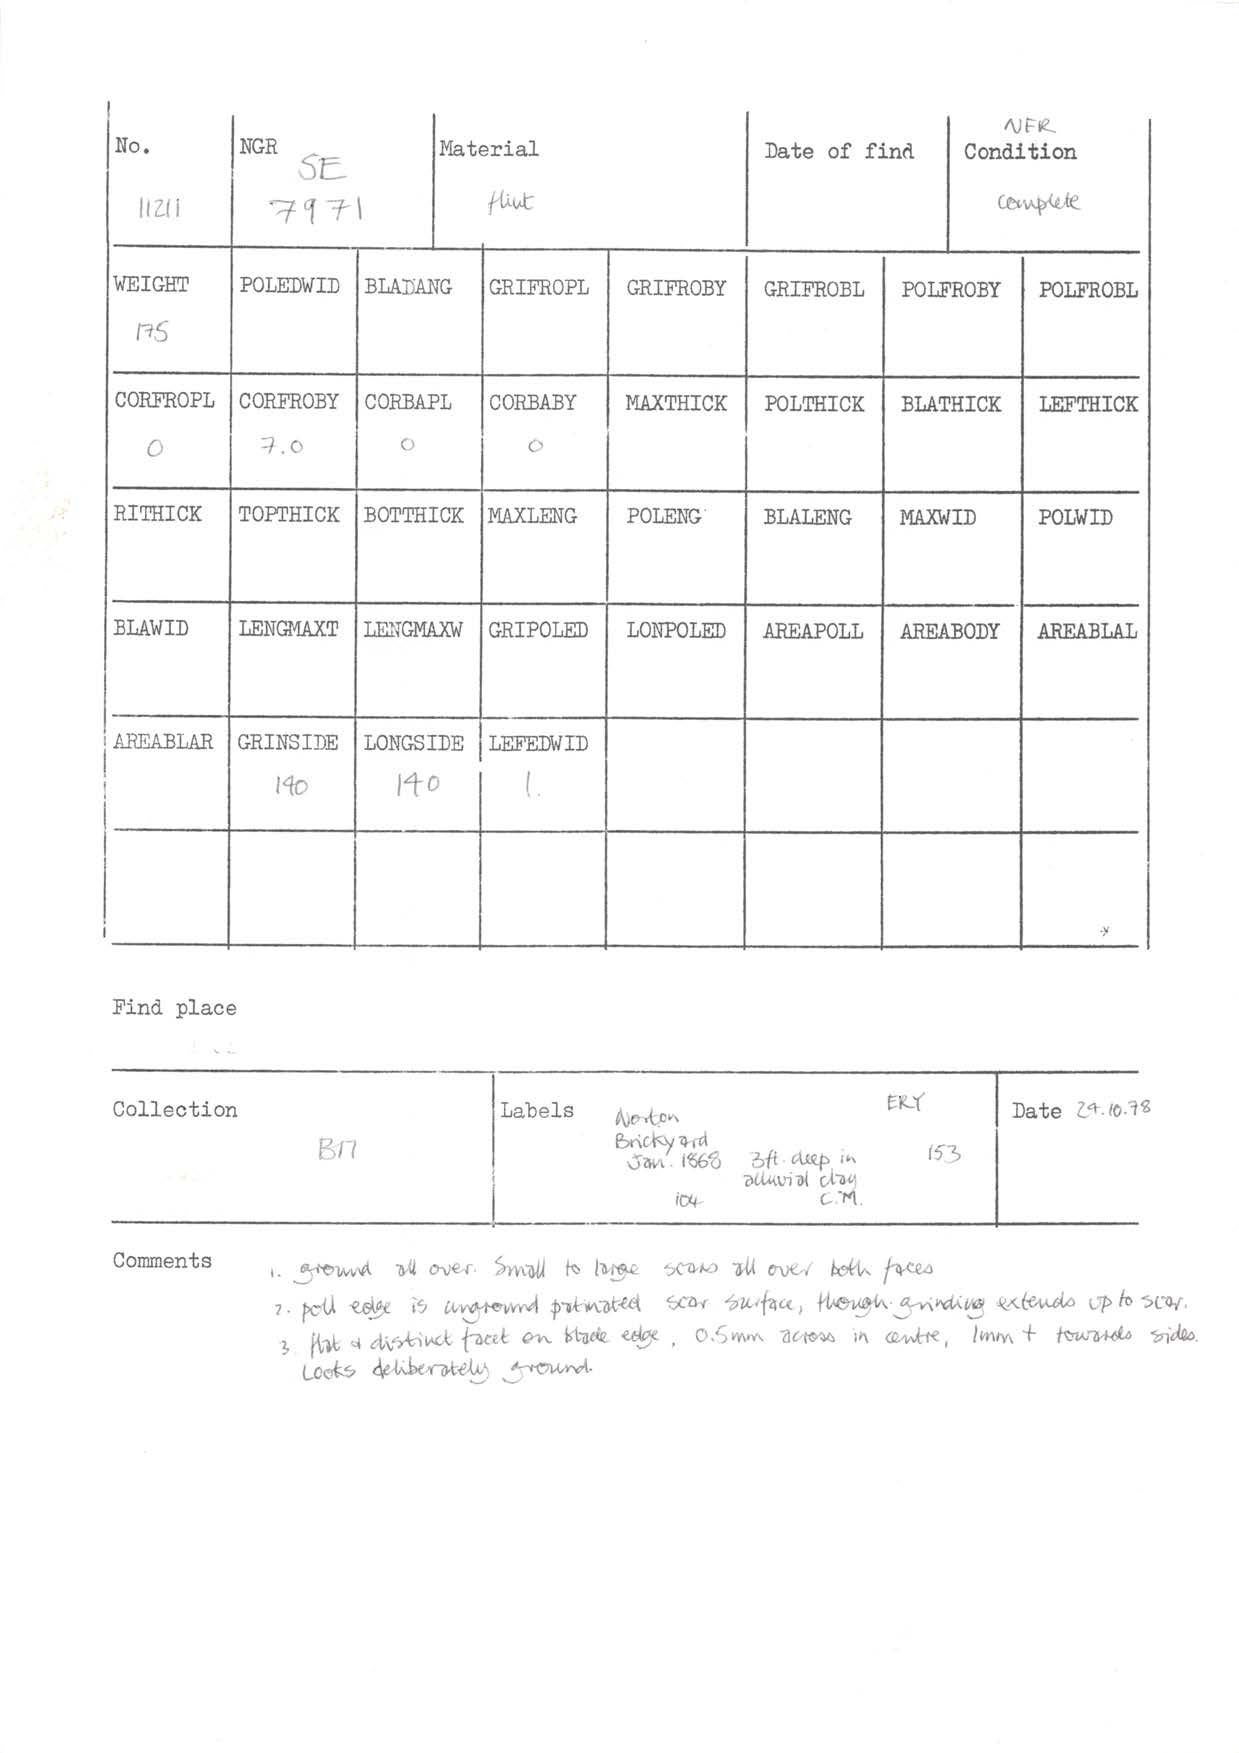 NER
No. NGR Material Date of find Condition
SE
11211 7971 flint complete
WEIGHT POLEDWID BLADANG GRIFROPL GRIFROBY GRIFROBL POLFROBY POLFROBL
175
CORFROPL CORFROBY CORBAPL CORBABY MAXTHICK POLTHICK BLATHICK LEFTHICK
0 7.0 0 0
RITHICK TOPTHICK BOTTHICK MAXLENG POLENG BLALENG MAXWID POLWID
BLAWID LENGMAXT LENGMAXW GRIPOLED LONPOLED AREAPOLL AREABODY AREABLAL
AREABLAR GRINSIDE LONGSIDE LEFEDWID
140 140 1.
Find place
Collection Labels Norton ERY Date 24.10.78
BM Brickyard 153
Jan. 1868 3ft. deep in
alluvial clay
104 C.M.
Comments 1. ground all over. Small to large scars all over both faces
2. poll edge is unground patinated scar surface, though grinding extends up to scar.
3. flat & distinct facet on blade edge, 0.5mm across in centre, 1mm + towards sides.
Looks deliberately ground.